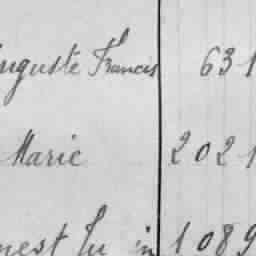 uguste Francis 631
Marie 2021
nest Lu in 1089